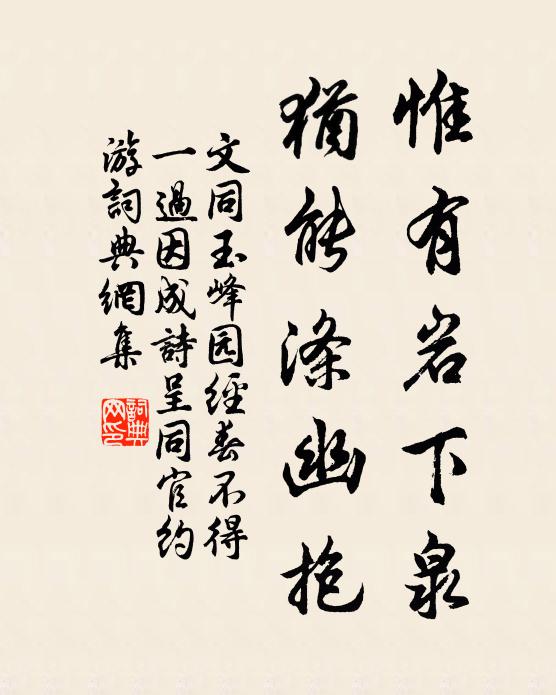 惟有岩下泉
猶能涤幽抱
文同玉峰园經春不得
一過因成詩呈同官约
游詞典網集
詞典網印